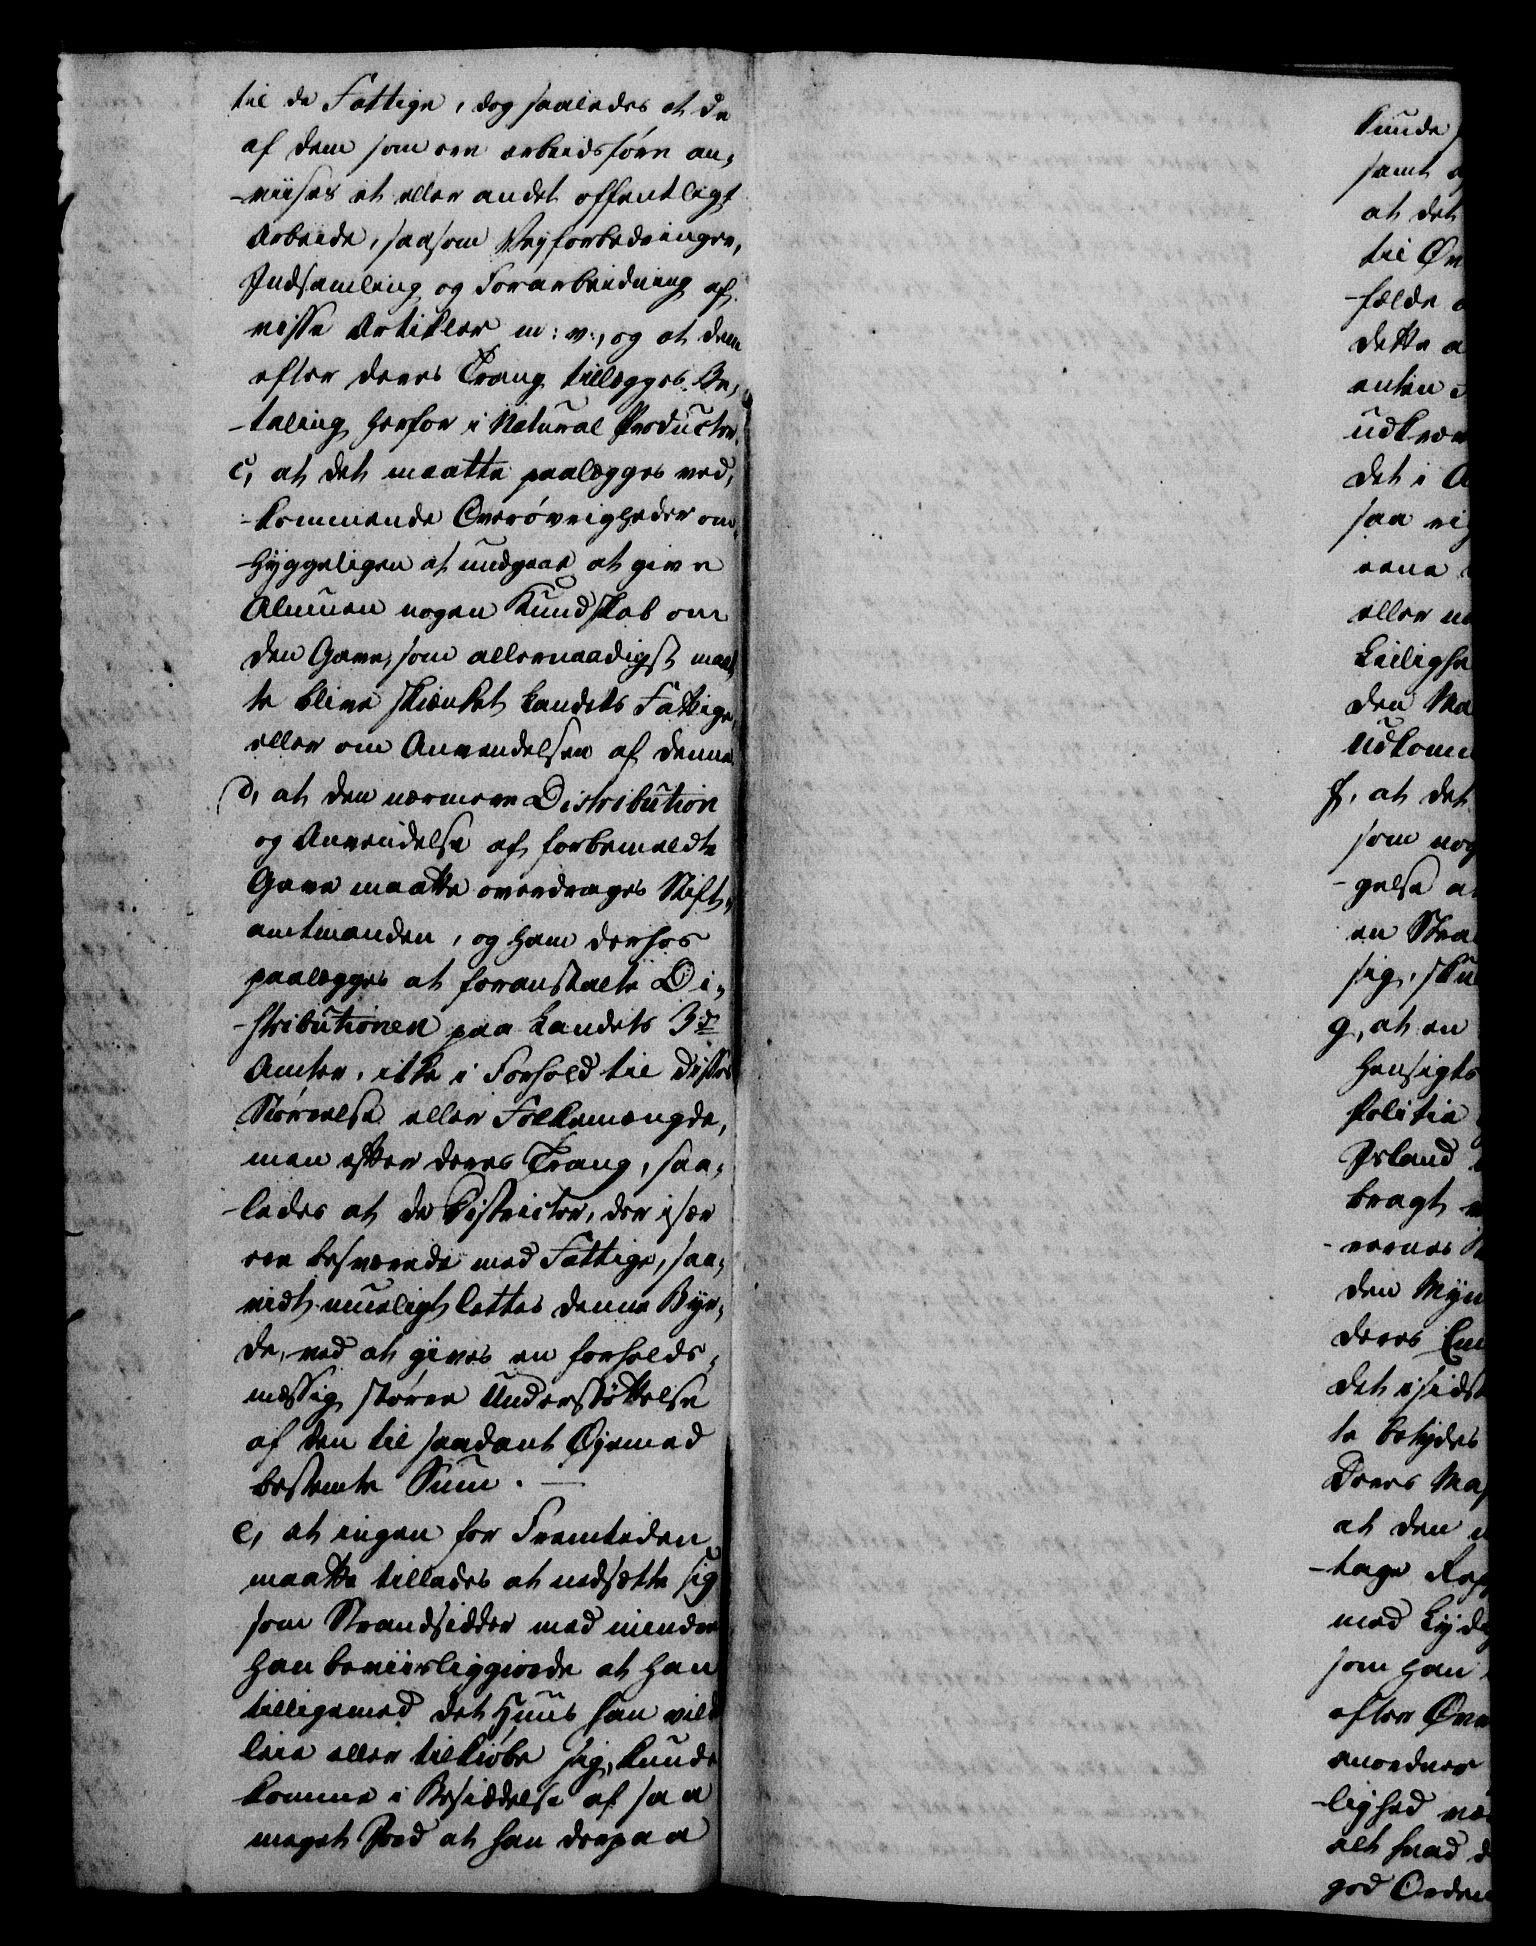 til de Fattige, dog saaledes at de
af dem som ere arbeidsføre an-
-viises et eller andet offentligt
Arbeide, saasom Vejforbedringer,
Indsamling og Forarbeidning af
visse Artikler m: v:, og at dem
efter deres Trang tillægges Be-
-taling herfor i Natural Producter.
c, at det maatte paalægges ved-
-kommende Overøvrigheder om-
-hyggeligen at undgaae at give
Almuen nogen Kundskab om
den Gave, som allernaadigst maat-
te blive skienket Landets Fattige,
eller om Anvendelsen af denne.
d, at den nærmere Distribution
og Anvendelse af forbemeldte
Gave maatte overdrages Stift-
amtmanden, og ham derhos
paalægges at foranstalte Di-
-stributionen paa Landets 3de
Amter, ikke i Forhold til disses
Størrelse eller Folkemængde,
men efter deres Trang, saa-
-ledes at de Districter, der især
ere besværede med Fattige, saa-
vidt mueligt lettes denne Byr-
de, ved at gives en forholds-
mæssig større Understøttelse
af den til saadant Øjemed
bestemte Sum. —
e, at ingen for Fremtiden
maatte tillades at nedsætte sig
som Strandsidder med mindre
han beviisliggiorde at han
tilligemed det Huus han vilde
leie eller tilkiøbe sig, kunde
komme i Besiddelse af saa
meget Jord at han derpaa
kunde
samt
at det
til
-fælde
dette
enten
det i
saa
eller
Leilighe
den
f, at det
som
-gelse
en
sig,
g, at en
hensigts
Politie
Island
bragt
den
deres
det
te betydes
Deres
at den
-tage
med
som han
efter
anordner
-lighed
alt hvad
god Orden